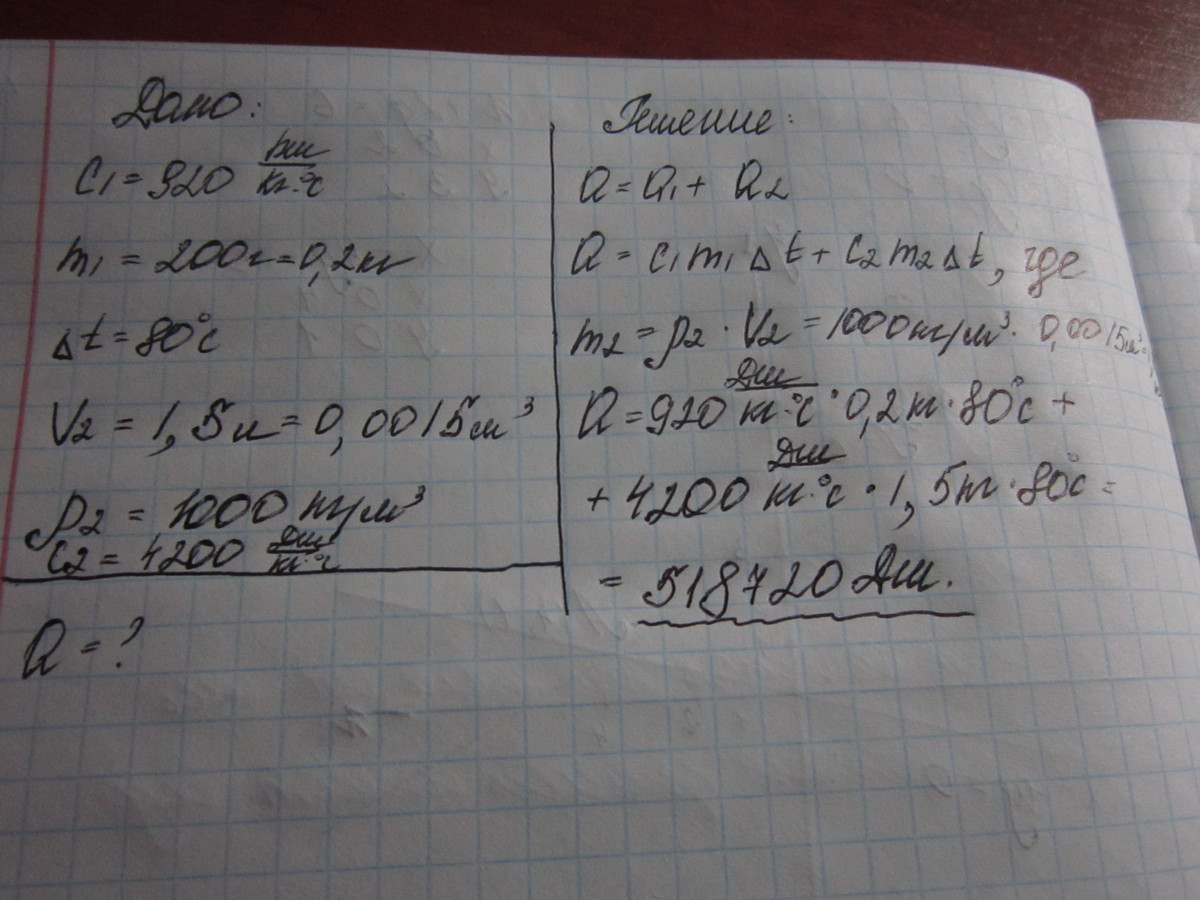 Дано:
C₁ = 920 Дж/кг·°C
m₁ = 200г = 0,2кг
Δt = 80°C
V₂ = 1,5л = 0,0015м³
ρ₂ = 1000 кг/м³
C₂ = 4200 Дж/кг·°C
Q = ?
Решение:
Q = Q₁ + Q₂
Q = C₁m₁Δt + C₂m₂Δt, где
m₂ = ρ₂ · V₂ = 1000кг/м³ · 0,0015м³ =
Q = 920 Дж/кг·°C · 0,2кг · 80°C +
+ 4200 Дж/кг·°C · 1,5кг · 80°C =
= 518720 Дж.